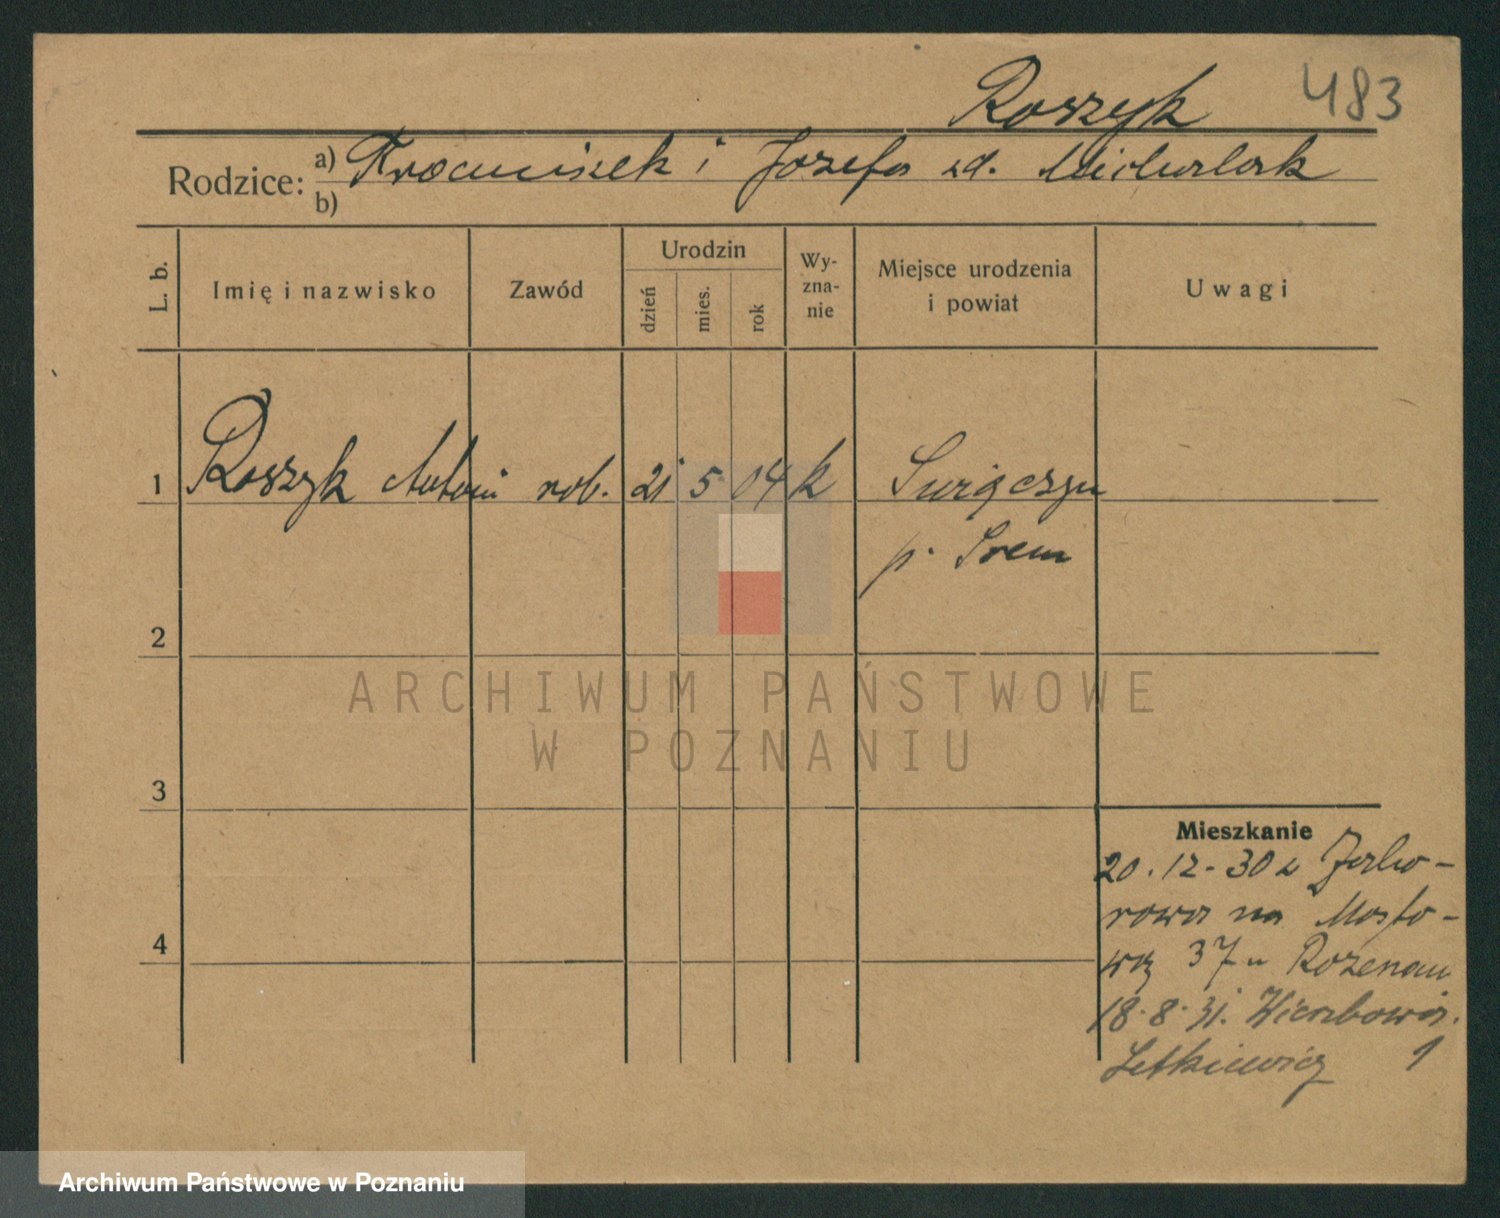 Roszyk 483
Rodzice: a) Franciszek i Józefa zd. Michalak
b)
L. b.
Imię i nazwisko
Zawód
Urodzin
dzień
mies.
rok
Wy-
zna-
nie
Miejsce urodzenia
i powiat
Uwagi
1 Roszyk Antoni rob. 21 5 04 k
p. Śrem
2
ARCHIWUM PAŃSTWOWE
W POZNANIU
3
Mieszkanie
20.12.30 z
rowa na Mosto-
wą 37 u
4
18.8.31. Wierzbowa
1
Archiwum Państwowe w Poznaniu